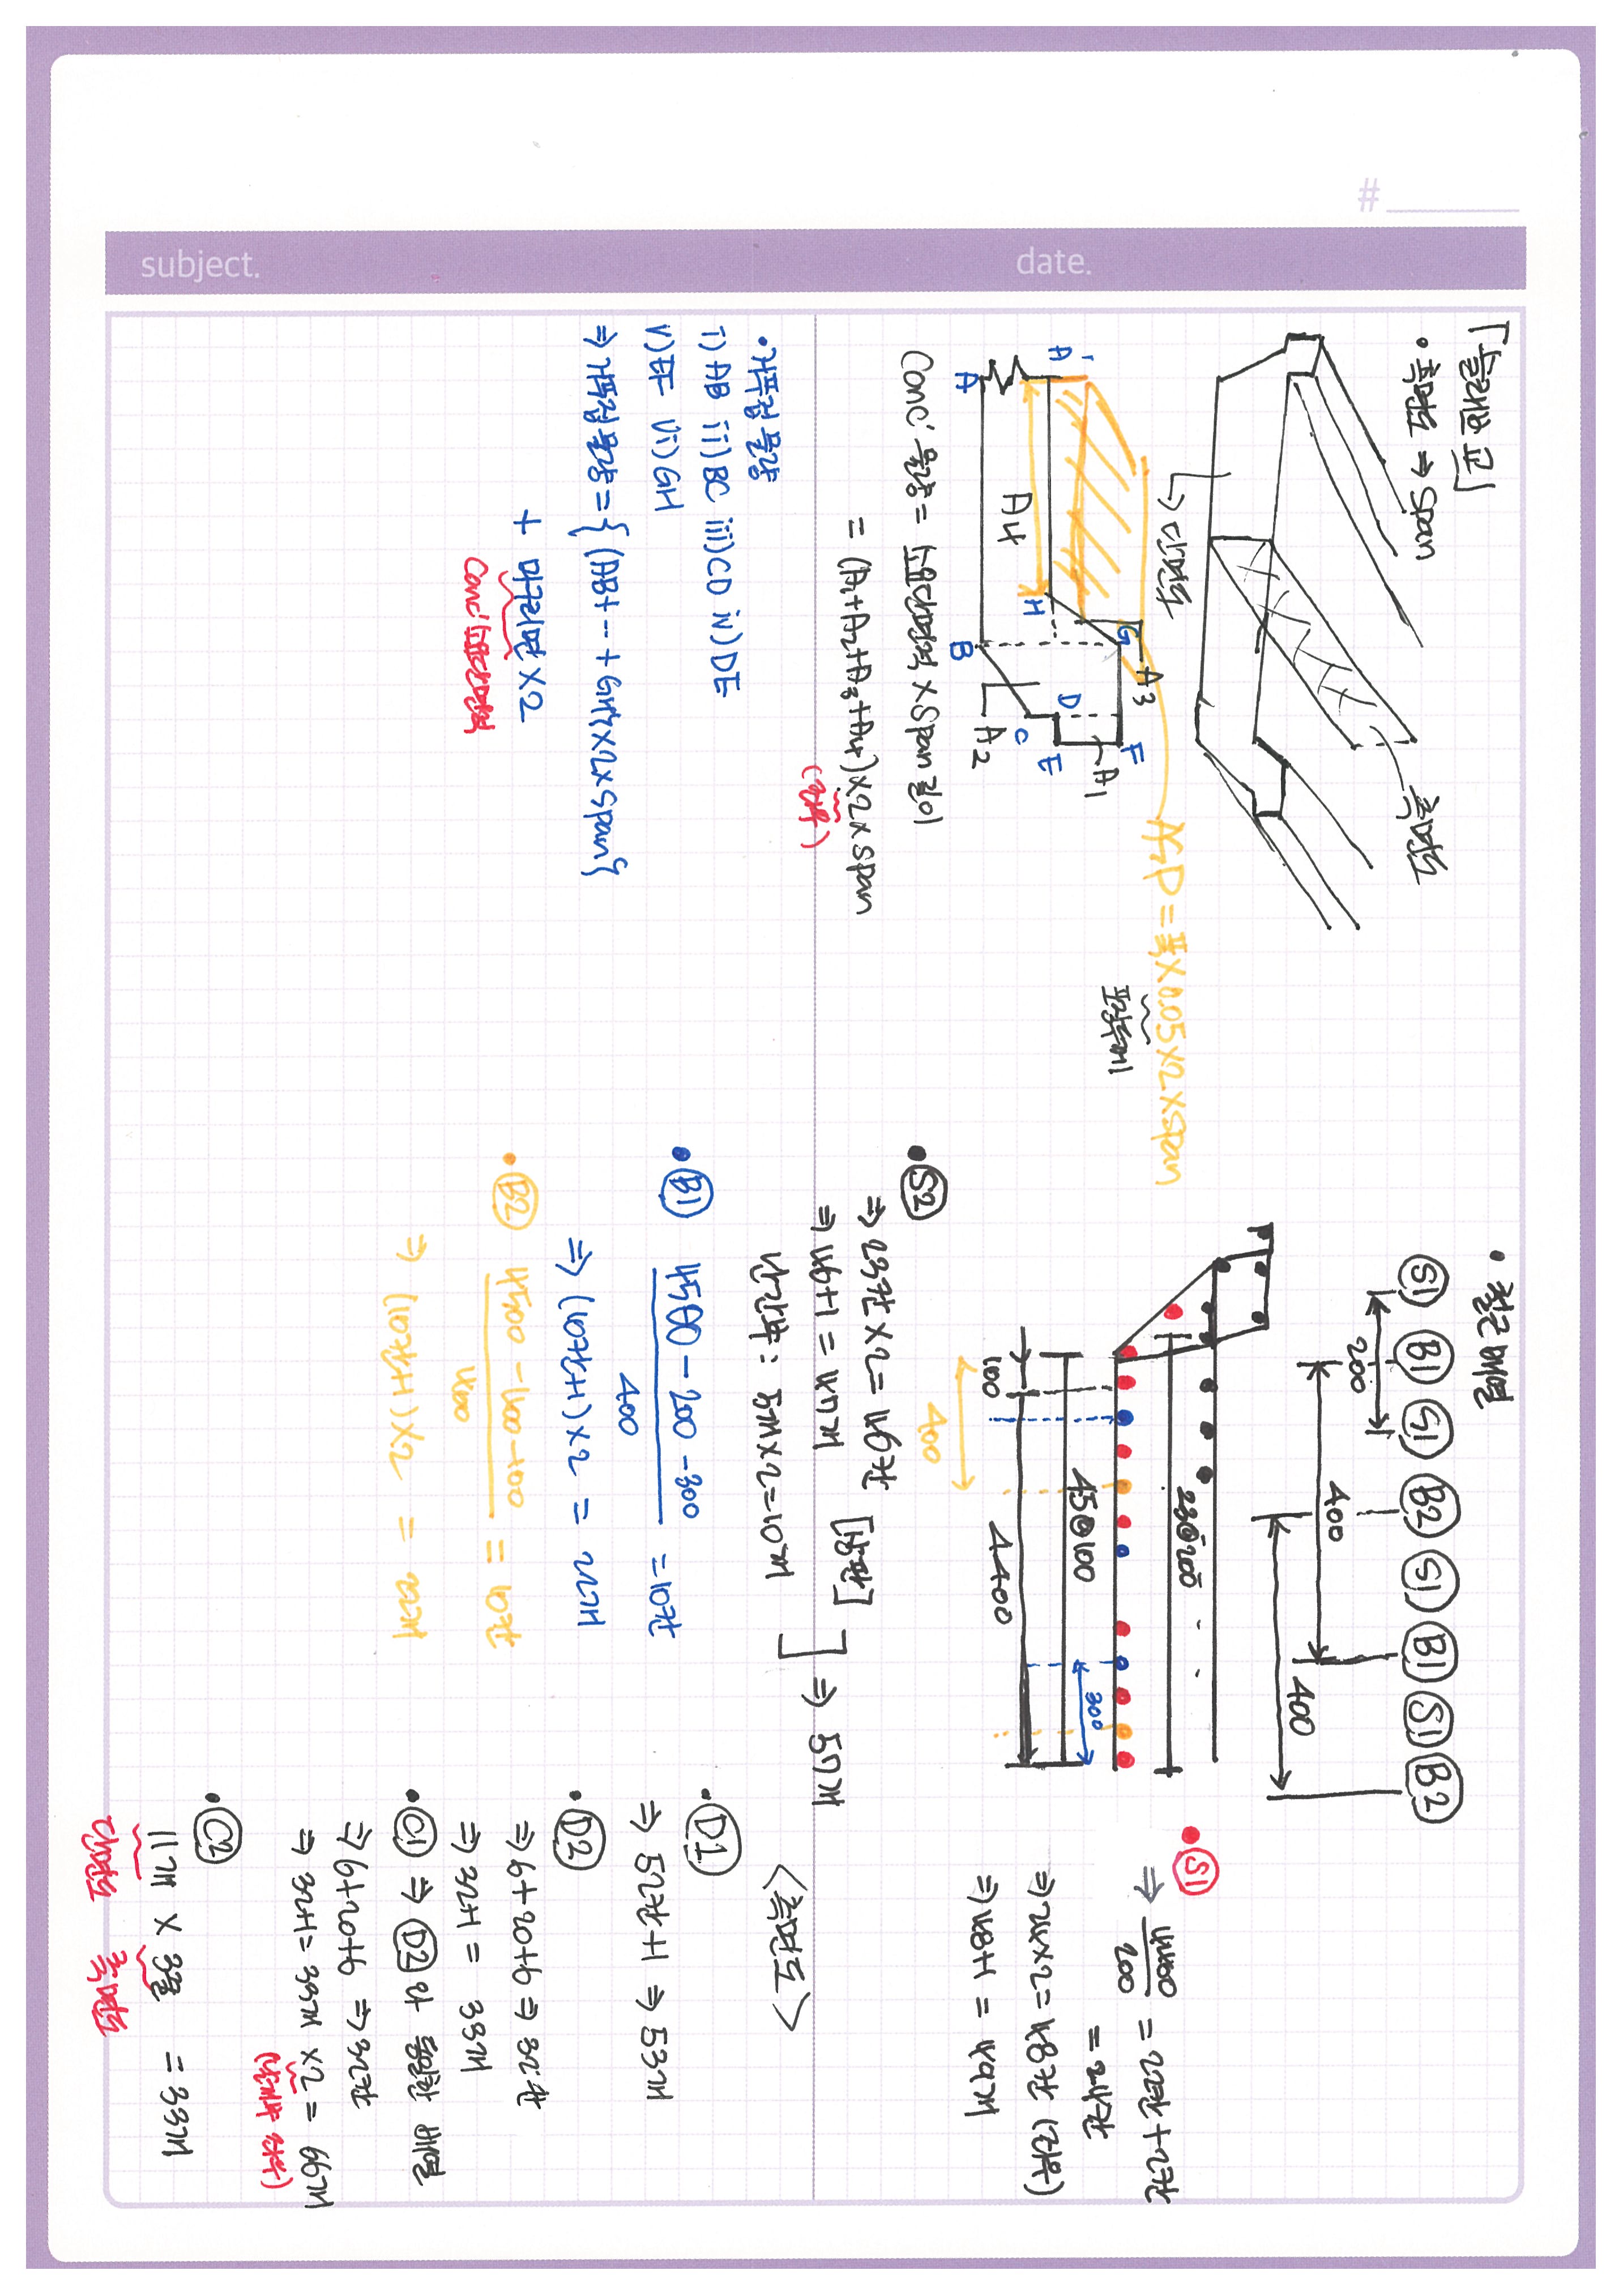 #
subject.
date.
「슬래브교」
• 측면도 ⇒ Span
→ 단면도
측면도
A' A A4 H G B C D E F A1 A2 A3
ASP = 폭 X 0.05 X 2 X Span
포장두께
Conc' 물량 = 도음단면적 X Span 길이
= (A1+A2+A3+A4) X2 X Span
(좌우)
• 거푸집 물량
i) AB ii) BC iii) CD iv) DE
V) EF Vi) GH
⇒ 거푸집물량 = {(AB+ -- + GH) X2 X Span}
+ 마구리면 X2
• 철근 배열
S1 B1 S1 B2 S1 B1 S1 B2
200
400
400
23@200
45@100
300
100
4400
400
• S1
⇒ 4400 / 200 = 22칸+2칸
= 24칸
⇒ 24X2 = 48칸 (좌우)
⇒ 48+1 = 49개
• S2
⇒ 23칸 X2 = 46칸
⇒ 46+1 = 47개 [상판]
난간부 : 5개 X2 = 10개
⇒ 57개
• B1
4500 - 200 - 300 / 400 = 10칸
⇒ (10칸+1) X2 = 22개
• B2
4500 - 400 - 100 / 400 = 10칸
⇒ (10칸+1) X2 = 22개
<측면도>
• D1
⇒ 52칸+1 ⇒ 53개
• D2
⇒ 6+20+6 ⇒ 32칸
⇒ 32+1 = 33개
• C1 ⇒ D2 와 동일한 배열
⇒ 6+20+6 ⇒ 32칸
⇒ 32+1 = 33개 X2 = 66개
• C2
11개 X 3줄 = 33개
단면도 측면도